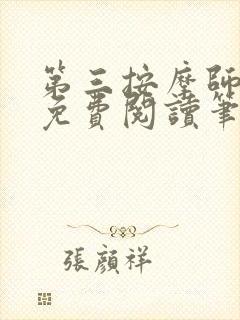 第三按摩師
免費閱讀筆
張顏祥